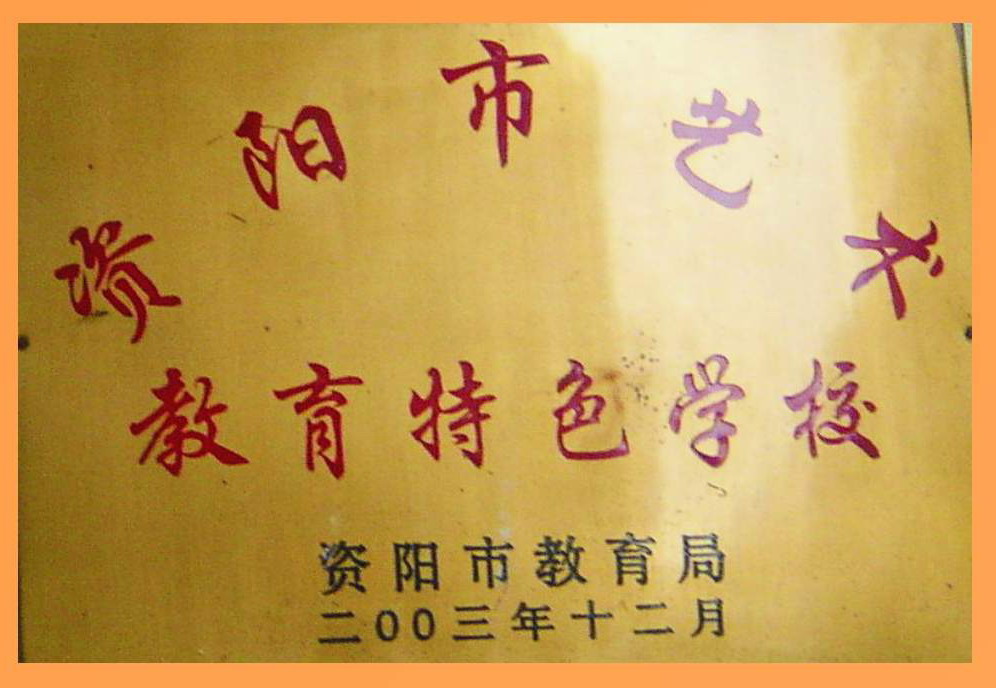 资阳市艺术
教育特色学校
资阳市教育局
二00三年十二月